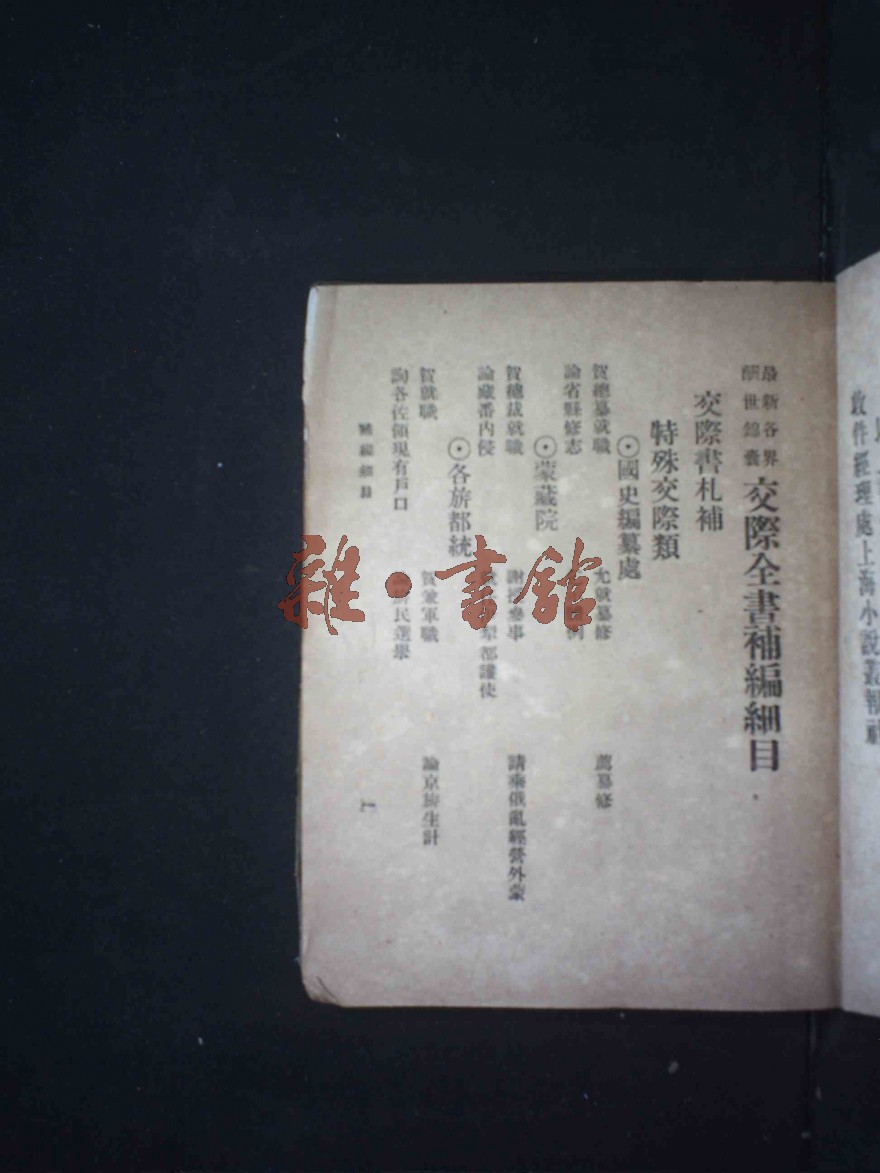 最新各界
酬世錦囊
交際全書補編細目
交際書札補
特殊交際類
⊙國史編纂處
賀總纂就職
允就纂修
薦纂修
論省縣修志
例
⊙蒙藏院
賀總裁就職
謝
參事
請乘俄亂經營外蒙
論藏番內侵
部護使
⊙各旂都統
賀就職
賀兼軍職
論京旂生計
詢各佐領現有戶口
民選舉
補編細目
啟件經理處上海小說叢報社
雜·書館